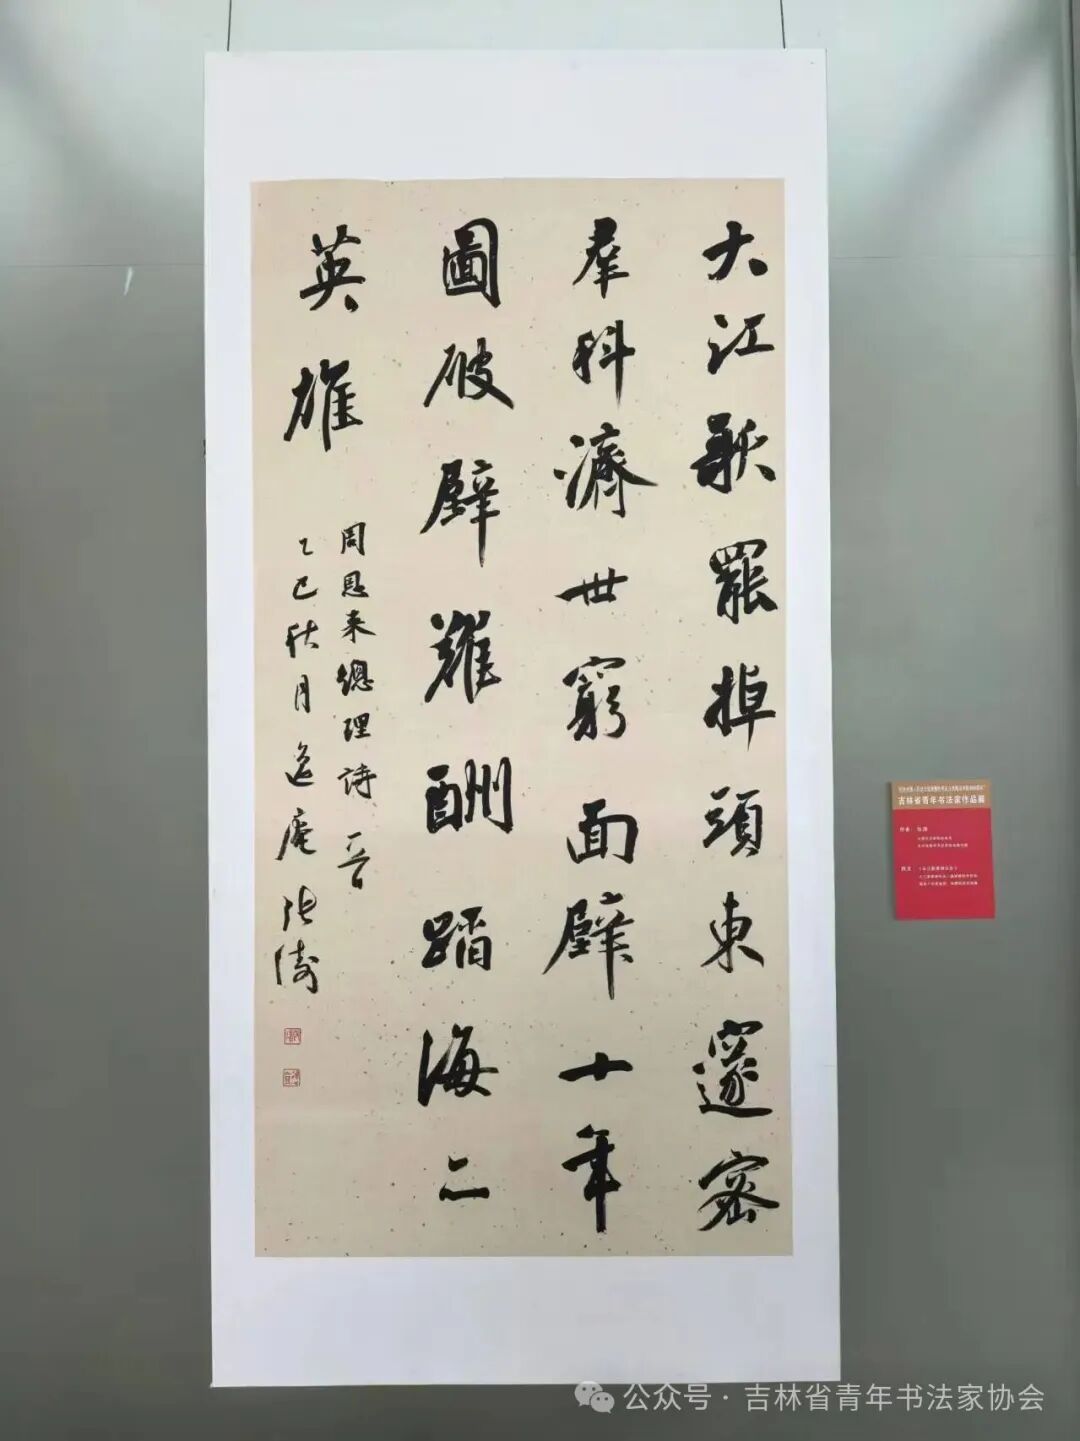 大江歌罷掉頭東邃密
羣科濟世窮面壁十年
圖破壁難酬蹈海二
英雄
周恩来總理詩一首
乙巳秋月逸庵张涛
吉林省青年书法家作品展
公众号·吉林省青年书法家协会